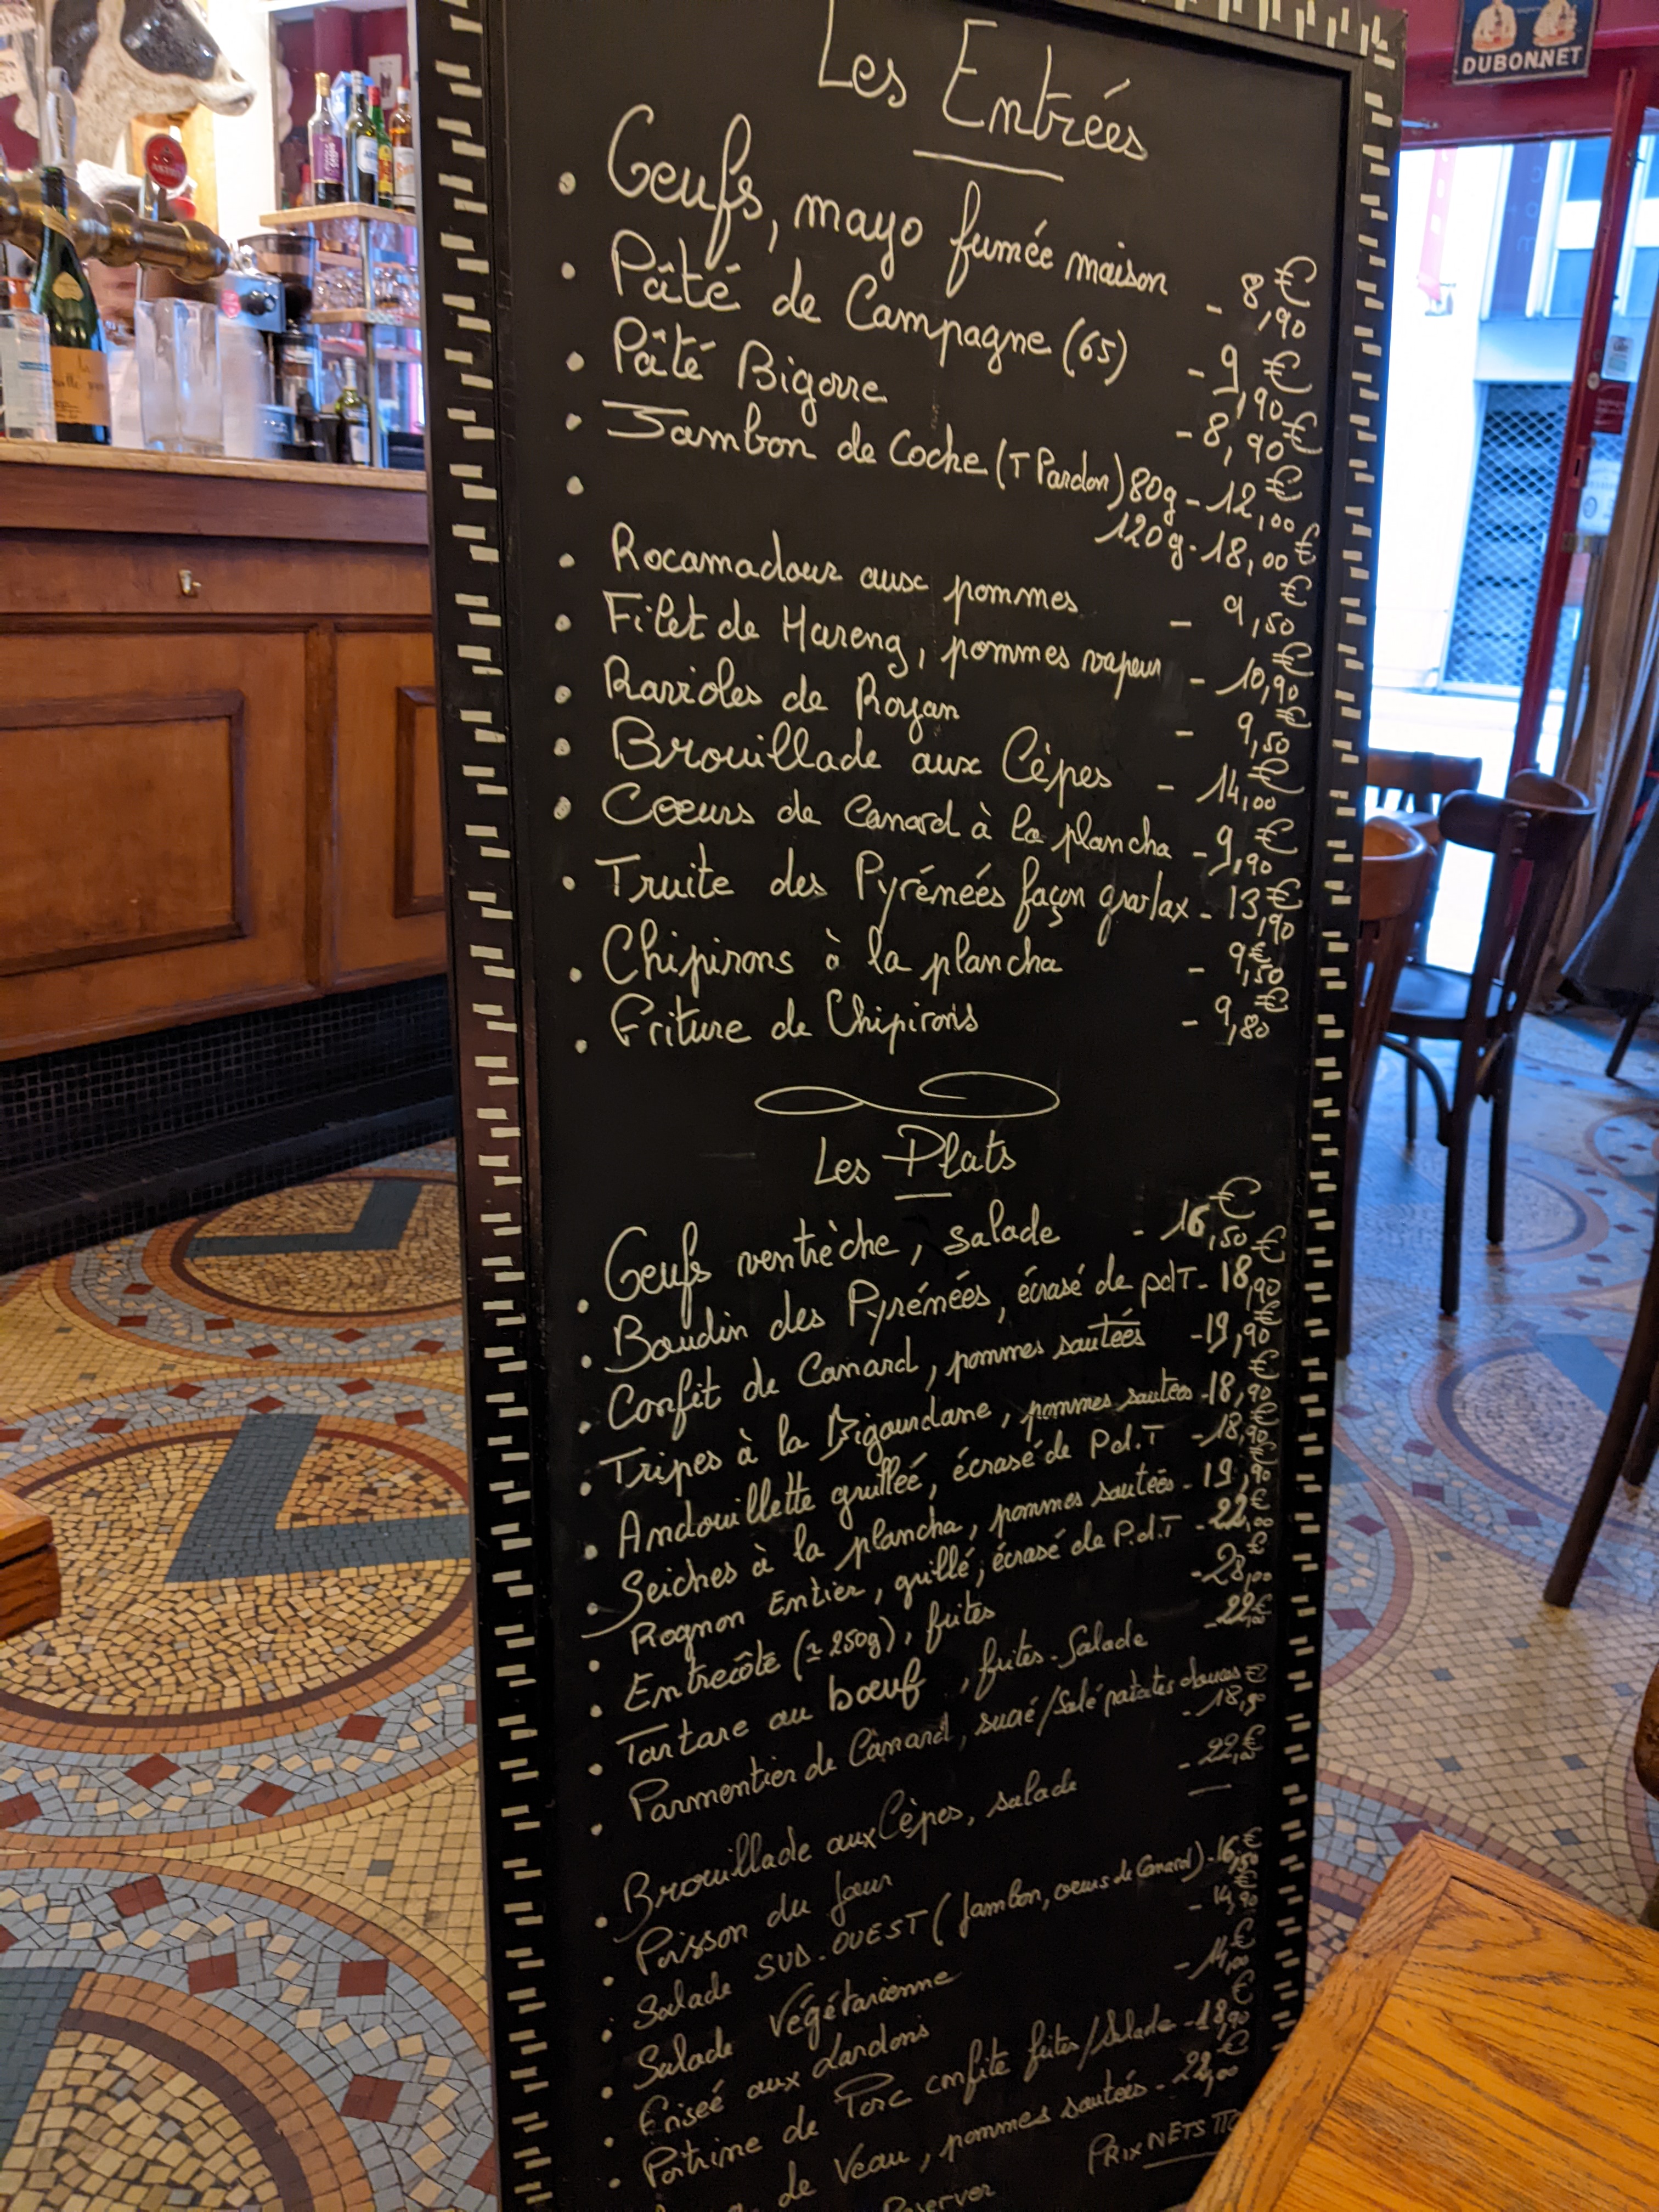 DUBONNET
Les Entrées
• Oeufs, mayo fumée maison - 8,90 €
• Pâté de Campagne (65) - 9,90 €
• Pâté Bigorre - 8,90 €
• Jambon de Coche (T Pardon) 80g - 12,00 €
• 120g - 18,00 €
• Rocamadour aux pommes - 9,50 €
• Filet de Hareng, pommes vapeur - 10,90 €
• Ravioles de Royan - 9,50 €
• Brouillade aux Cèpes - 14,00 €
• Coeurs de Canard à la plancha - 9,90 €
• Truite des Pyrénées façon gravlax - 13,90 €
• Chipirons à la plancha - 9,50 €
• Friture de Chipirons - 9,80 €
Les Plats
• Oeufs ventrèche, salade - 16,50 €
• Boudin des Pyrénées, écrasé de pdT - 18,90 €
• Confit de Canard, pommes sautées - 19,90 €
• Tripes à la Bigourdane, pommes sautées - 18,90 €
• Andouillette grillée, écrasé de P.d.T - 18,90 €
• Seiches à la plancha, pommes sautées - 19,90 €
• Rognon Entier, grillé, écrasé de P.d.T - 22,00 €
• Entrecôte (≃ 250g), frites - 28,00 €
• Tartare au boeuf, frites - Salade - 22,00 €
• Parmentier de Canard, sucré/Salé patates douces - 18,90 €
• Brouillade aux Cèpes, salade - 22,00 €
• Poisson du Jour —
• Salade SUD-OUEST (Jambon, coeurs de Canard) - 16,50 €
• Salade Végétarienne - 14,90 €
• Frisée aux lardons - 14,00 €
• Poitrine de Porc confite frites/Salade - 18,90 €
de Veau, pommes sautées -
PRIX NETS TTC